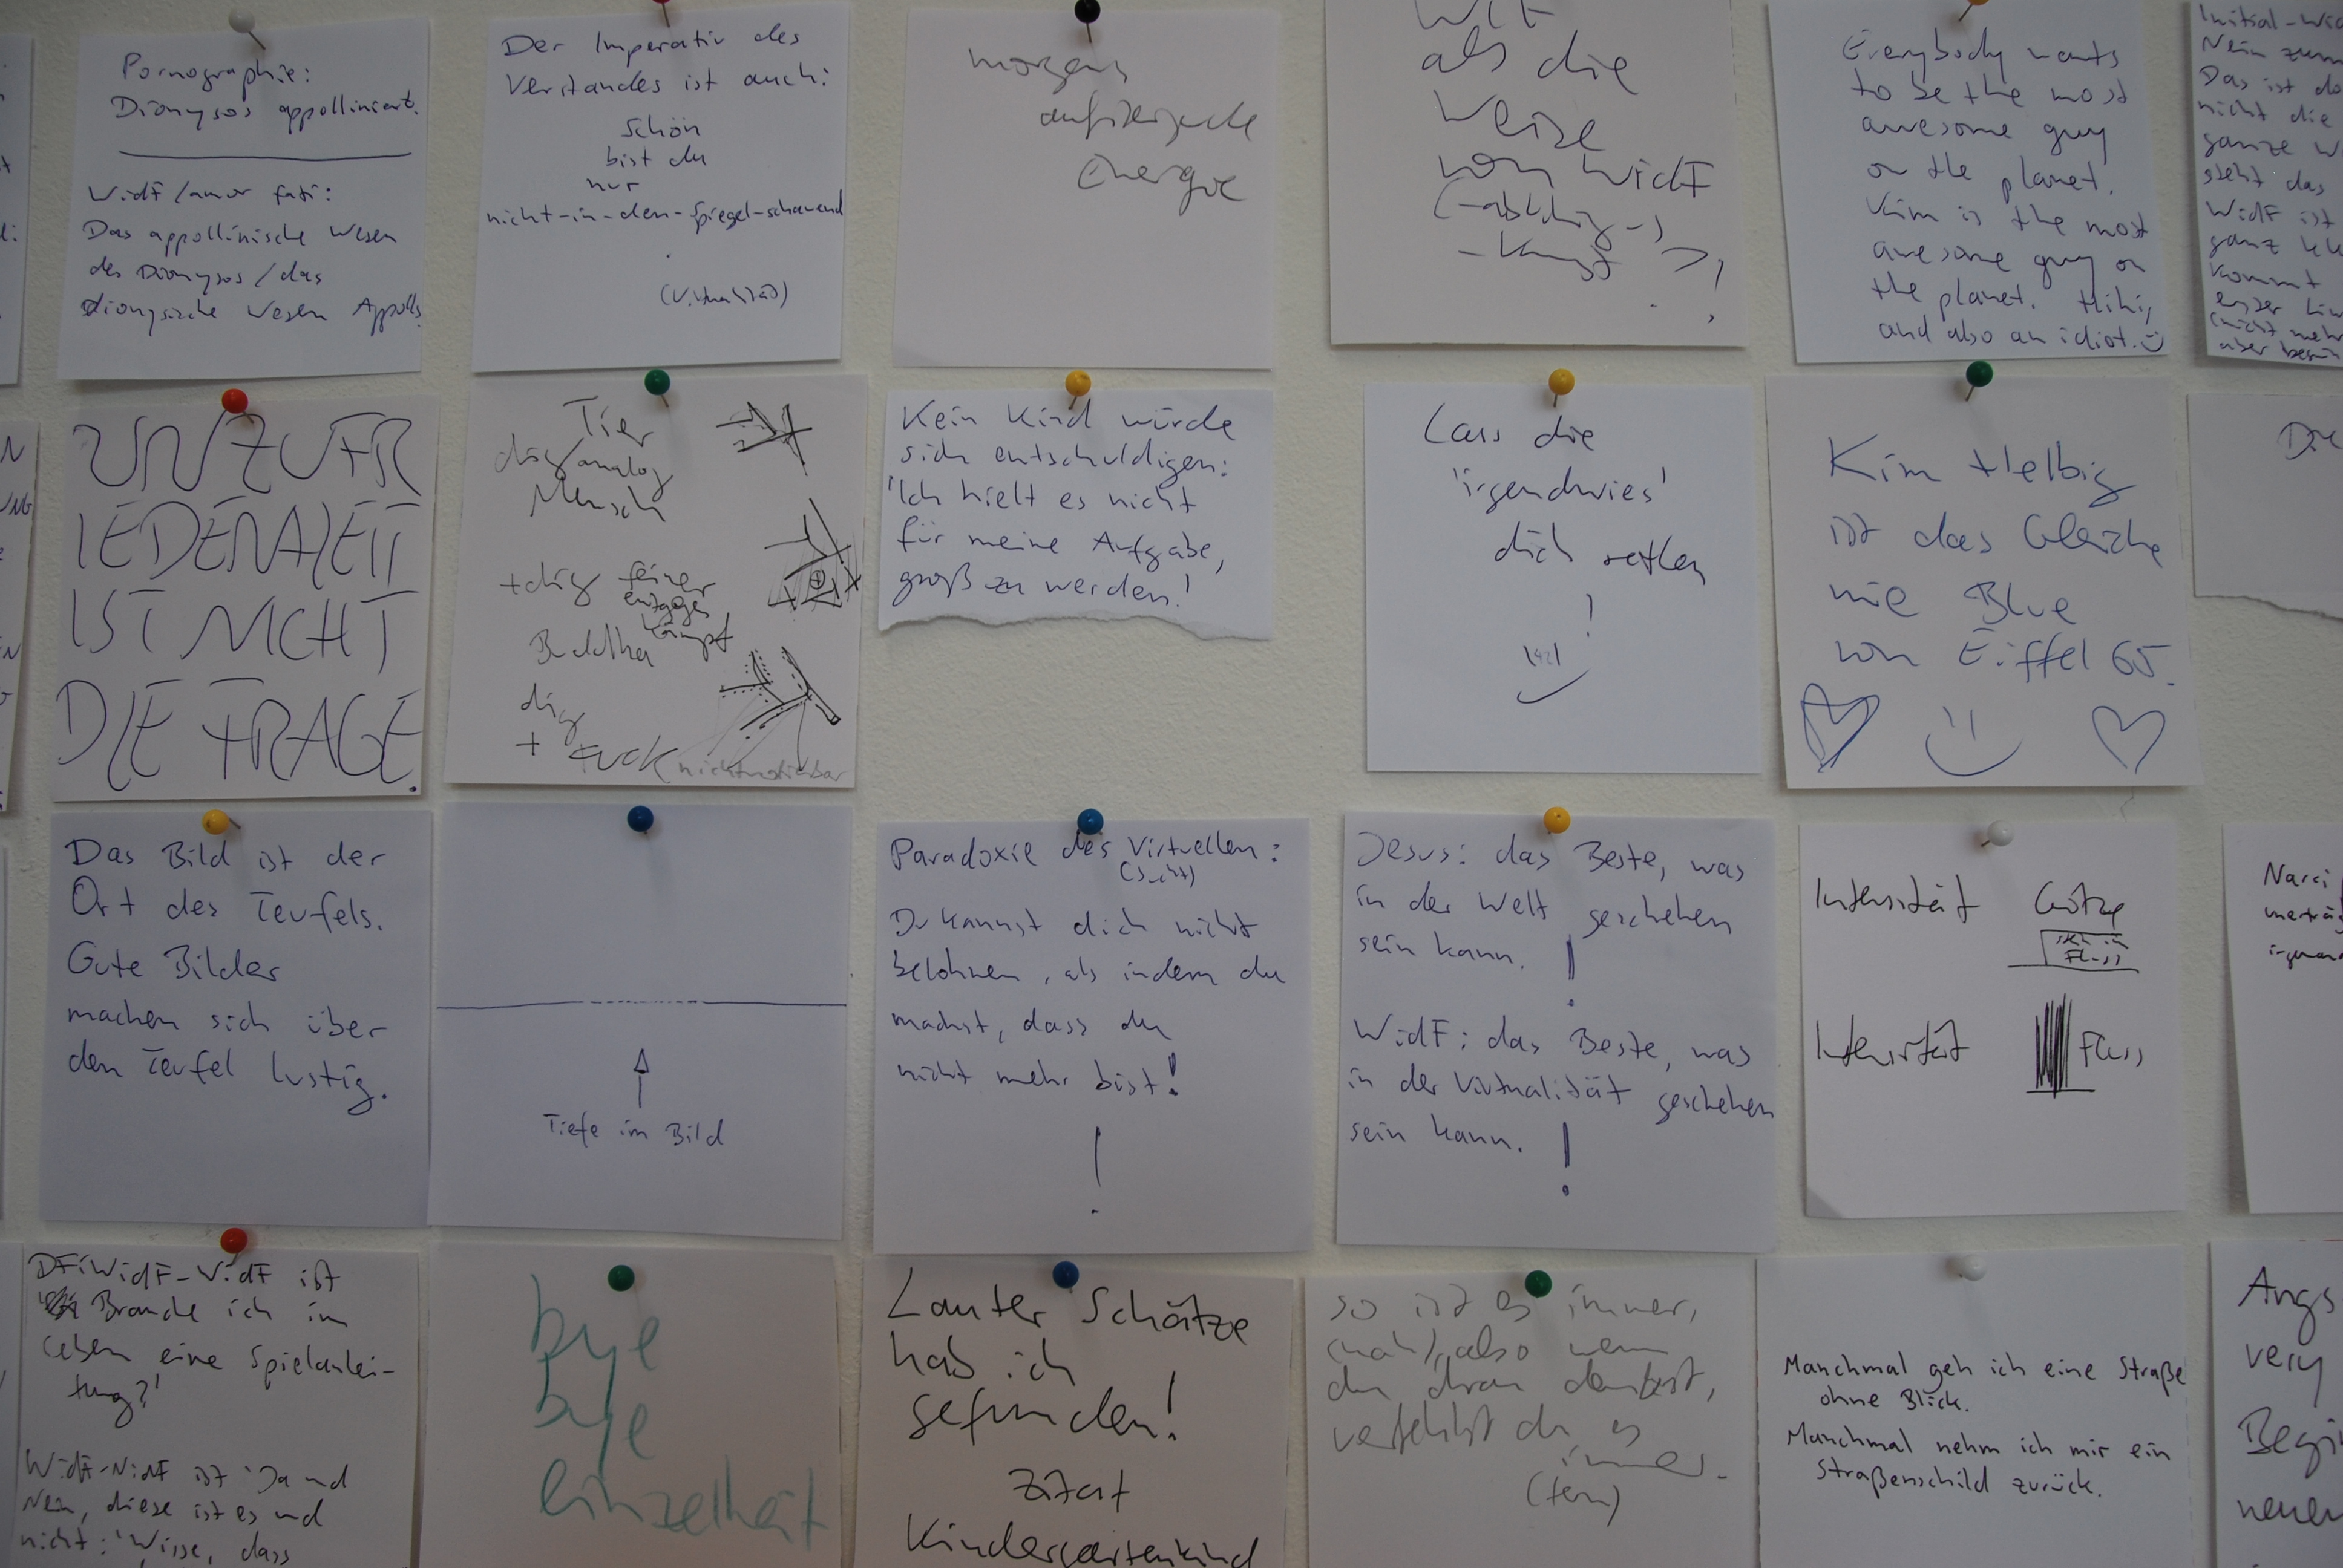 Pornographie:
Dionysos appolliniert.
WidF/amor fati:
Das appollinische Wesen
des Dionysos/das
dionysische Wesen Appolls
Der Imperativ des
Verstandes ist auch:
schön
bist du
nur
nicht-in-den-Spiegel-schauend
.
(Virtualität)
morgens
Energie
als die
Weise
von WidF
-Kunst
Everybody wants
to be the most
awesome guy
on the planet.
Kim is the most
awesome guy on
the planet. Hihi,
and also an idiot.
Initial-Wid
Nein zum
Das ist do
nicht die
ganze W
steht das
WidF ist
ganz
kommt
(nicht mehr
UNZUFR
IEDENHEIT
IST NICHT
DIE FRAGE.
Tier
analog
Mensch
entgegen
kämpf
Buddha
+ FUCK
Kein Kind würde
sich entschuldigen:
'Ich hielt es nicht
für meine Aufgabe,
groß zu werden!
Lass die
'irgendwies'
dich retten
!
Kim Helbig
ist das Gleiche
wie Blue
von Eiffel 65.
Die
Das Bild ist der
Ort des Teufels.
Gute Bilder
machen sich über
den Teufel lustig.
Tiefe im Bild
Paradoxie des Virtuellen:
(Sucht)
Du kannst dich nicht
belohnen, als indem du
machst, dass du
nicht mehr bist!
!
Jesus: das Beste, was
in der Welt geschehen
sein kann. !
WidF: das Beste, was
in der Virtualität geschehen
sein kann. !
Intensität Götze
Intensität Fluss
Narci
DFiWidF-WidF ist
Brauche ich im
Leben eine Spielanlei-
tung?'
WidF-NidF ist 'Ja und
Nein, diese ist es und
nicht: 'Wisse, dass
bye
bye
einzelheit
Lauter Schätze
hab ich
gefunden!
Zitat
Kindergartenkind
so ist es immer,
(nah), also wenn
du dran denkst,
verfehlst du es
immer.
(fern)
Manchmal geh ich eine Straße
ohne Blick.
Manchmal nehm ich mir ein
Straßenschild zurück.
Angs
very
Begi
neuen